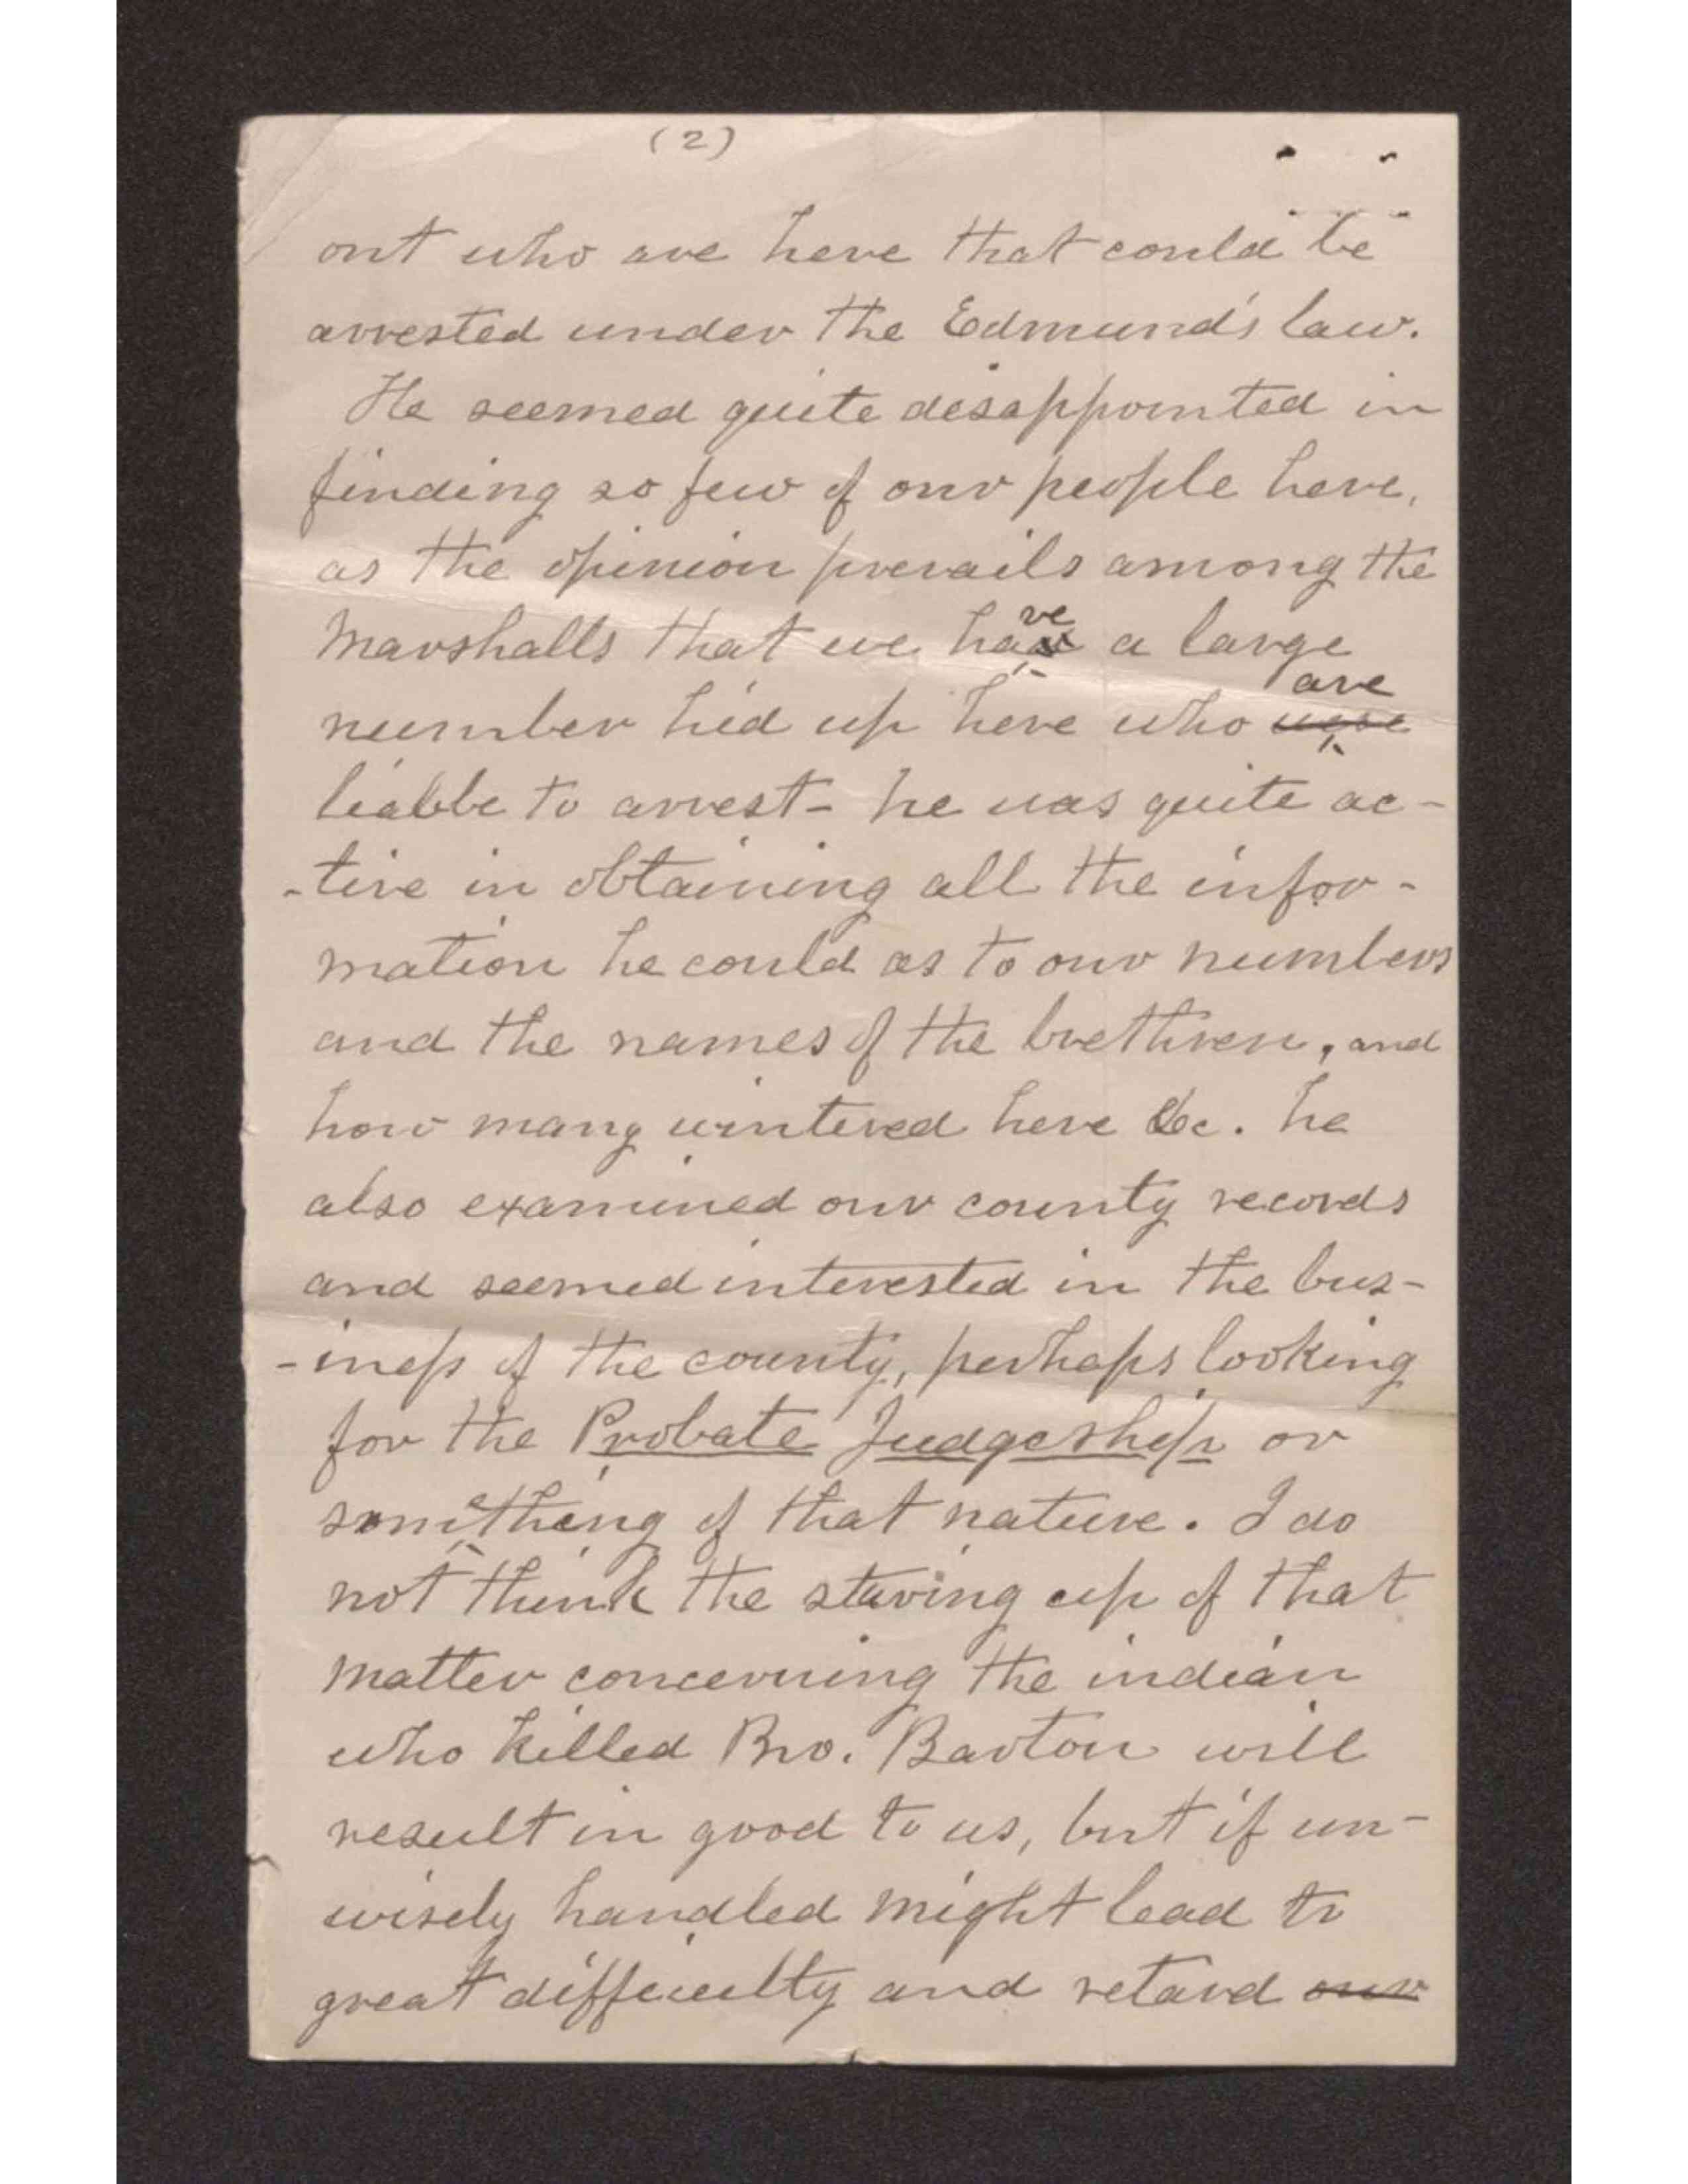 (2)
out who are here that could be
arrested under the Edmund's law.
He seemed quite disappointed in
finding so few of our people here,
as the opinion prevails among the
Marshalls that we have a large
are
number hid up here who were
liable to arrest - he was quite ac-
-tive in obtaining all the infor-
mation he could as to our numbers
and the names of the brethren, and
how many wintered here &c. he
also examined our county records
and seemed interested in the bus-
-iness of the county, perhaps looking
for the Probate Judgeship or
something of that nature. I do
not think the stiring up of that
matter concerning the indian
who killed Bro. Barton will
result in good to us, but if un-
wisely handled might lead to
great difficulty and retard our